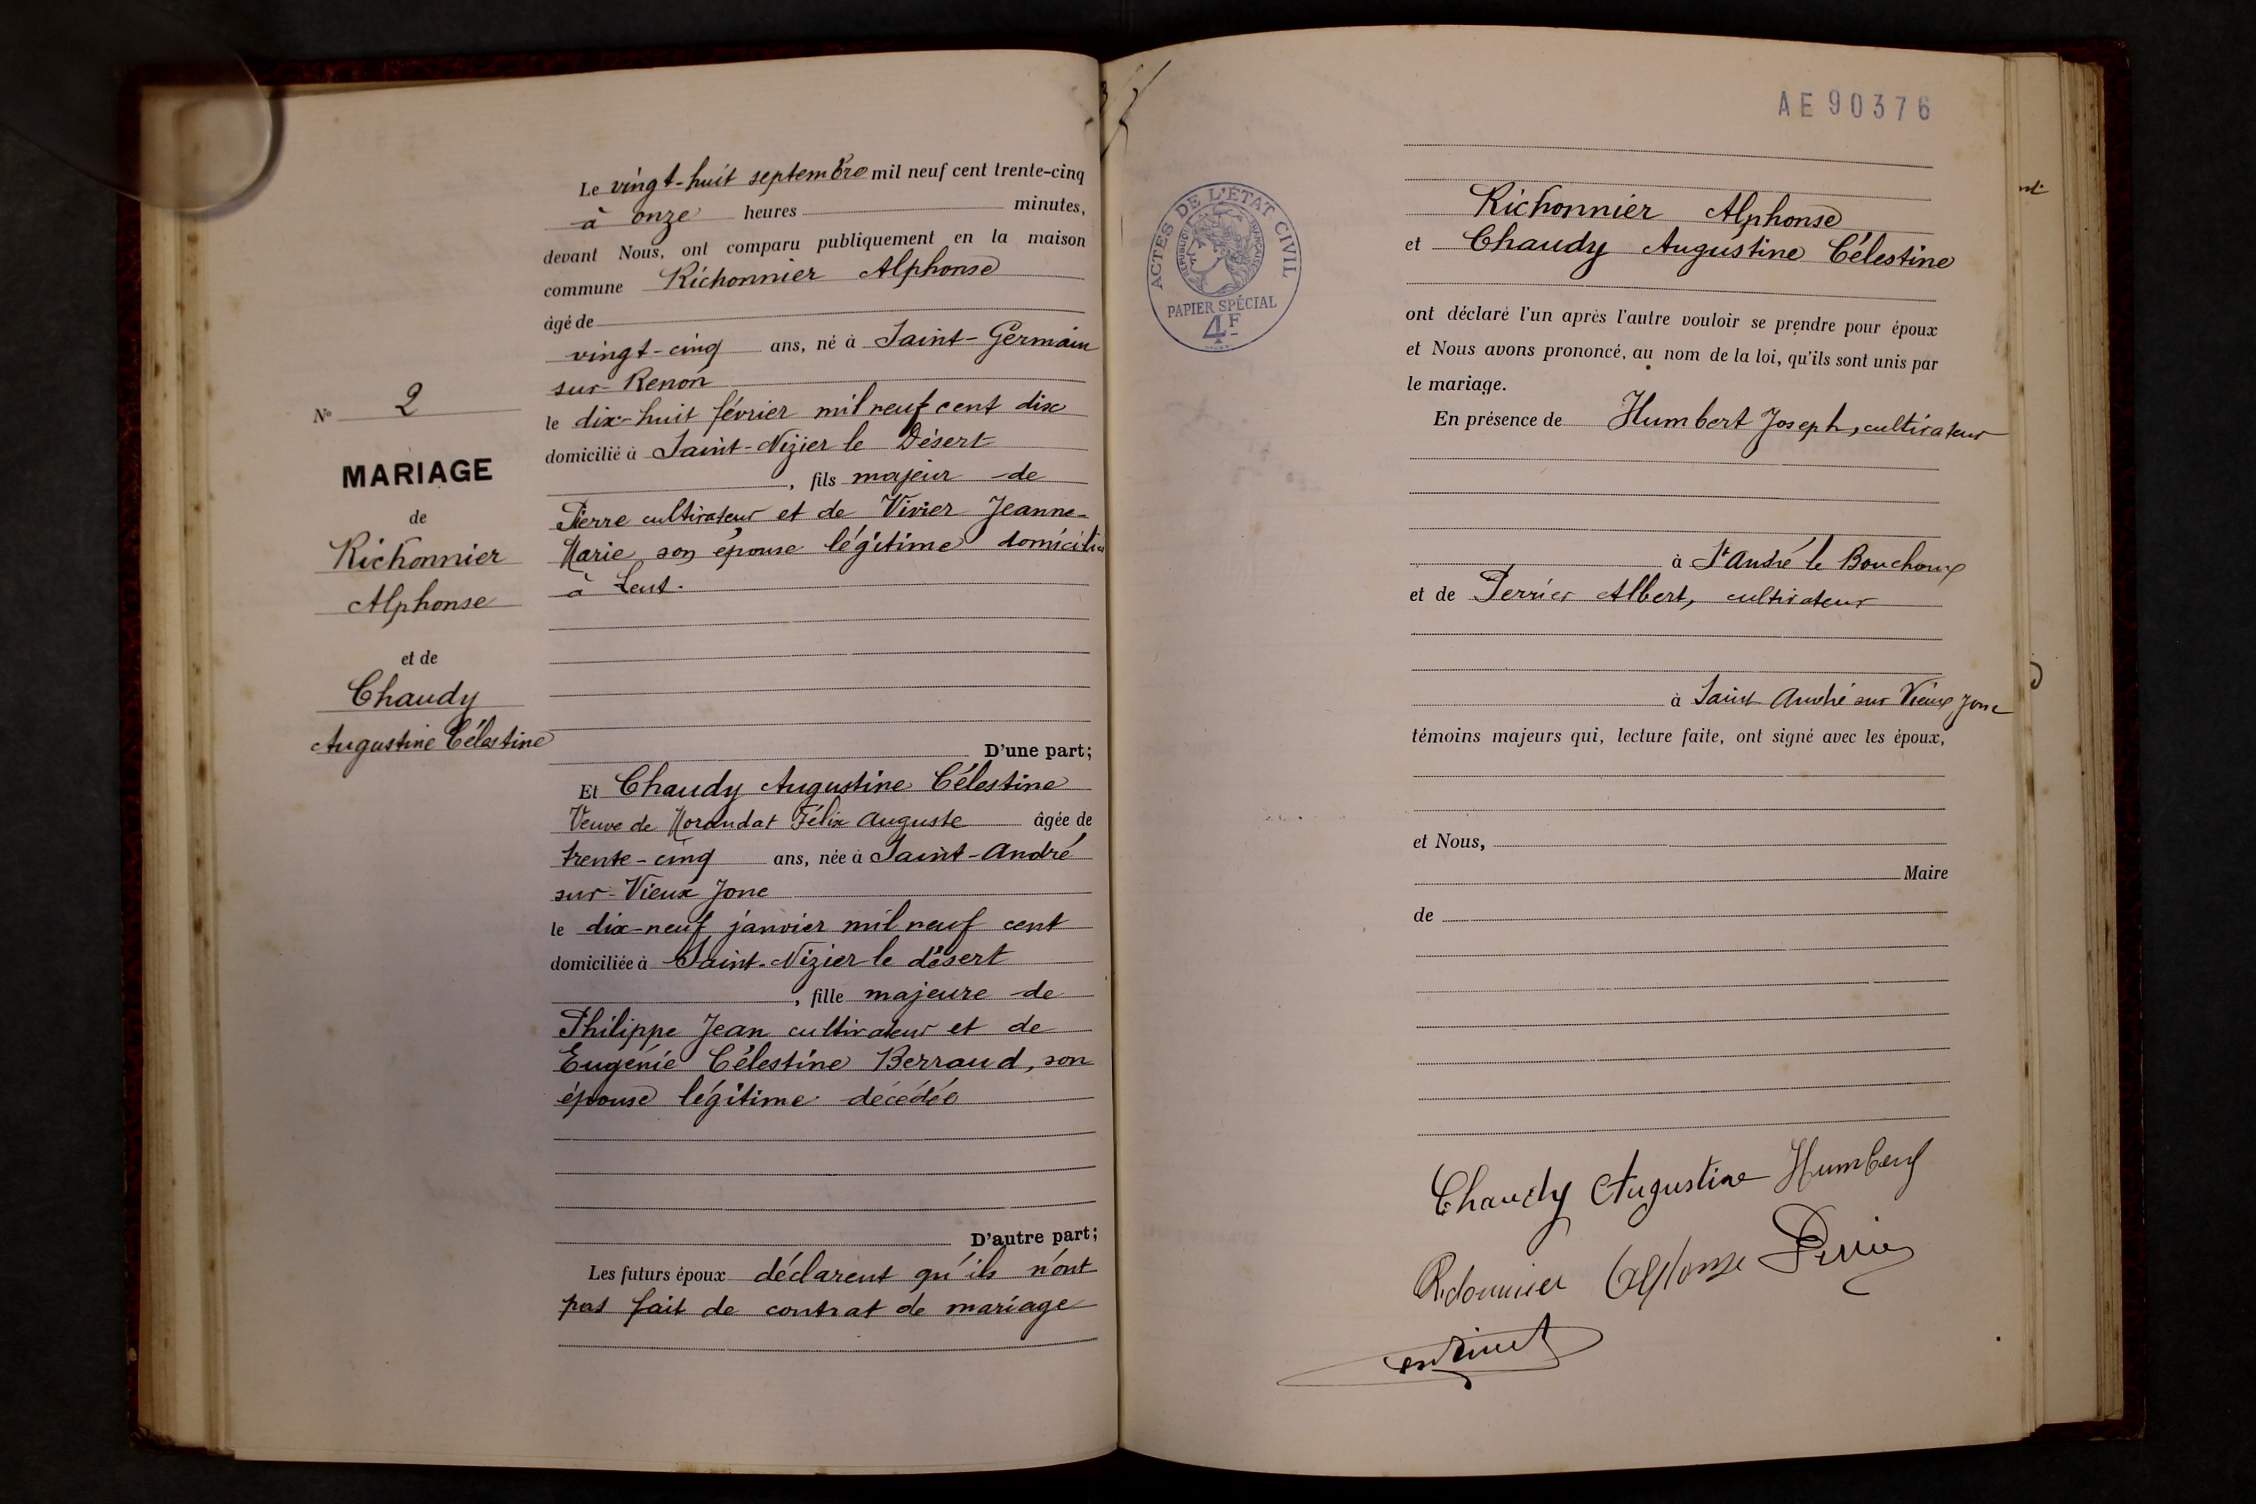 N° 2
MARIAGE
de
Richonnier
Alphonse
et de
Chaudy
Augustine Célestine
Le vingt-huit septembre mil neuf cent trente-cinq
à onze heures minutes,
devant Nous, ont comparu publiquement en la maison
commune Richonnier Alphonse
âgé de
vingt-cinq ans, né à Saint-Germain
sur-Renon
le dix-huit février mil neuf cent dix
domicilié à Saint-Nizier le Désert
, fils majeur de
Pierre cultivateur et de Vivier Jeanne-
Marie son épouse légitime domiciliés
à Lent.
D'une part;
Et Chaudy Augustine Célestine
Veuve de Morandat Félix Auguste âgée de
trente-cinq ans, née à Saint-André
sur-Vieux Jonc
le dix-neuf janvier mil neuf cent
domiciliée à Saint-Nizier le désert
, fille majeure de
Philippe Jean cultivateur et de
Eugénie Célestine Berraud, son
épouse légitime décédée
D'autre part;
Les futurs époux déclarent qu'ils n'ont
pas fait de contrat de mariage
AE 90376
ACTES DE L'ÉTAT CIVIL
RÉPUBLIQUE FRANÇAISE
PAPIER SPÉCIAL
4F
Richonnier Alphonse
et Chaudy Augustine Célestine
ont déclaré l'un après l'autre vouloir se prendre pour époux
et Nous avons prononcé, au nom de la loi, qu'ils sont unis par
le mariage.
En présence de Humbert Joseph, cultivateur
à St André le Bouchoux
et de Perrier Albert, cultivateur
à Saint André sur Vieux Jonc
témoins majeurs qui, lecture faite, ont signé avec les époux,
et Nous,
Maire
de
Chaudy Augustine Humbert
Richonnier Alphonse Perrier